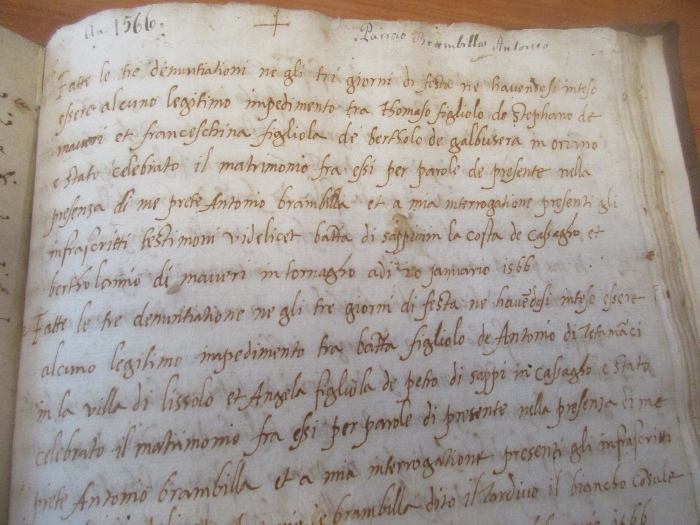 An. 1566. + Parroco Brambilla Antonio
Fatte le tre denuntiationi ne gli tri giorni di festa ne havendosi inteso
essere alcuno legitimo impedimento tra Thomaso figliolo de Stephano de
maueri et franceschina figliola de bertholo de galbusera in oriano
e stato celebrato il matrimonio fra essi per parole de presente nella
presenza di me prete Antonio brambilla et a mia interrogatione presenti gli
infrascritti testimoni videlicet batta di sappi in la costa de casagho et
bertholamio di maueri in tornagho adi 20 januario 1566
Fatte le tre denuntiatione ne gli tre giorni di festa ne havendosi inteso essere
alcuno legitimo impedimento tra batta figliolo de Antonio di
in la villa di lissolo et Angela figliola de di sappi in casagho e stato
celebrato il matrimonio fra essi per parole di presente nella presenza di me
prete Antonio brambilla et a mia interrogatione presenti gli infrascritti
brambilla dito il tardivo il biancho
1566